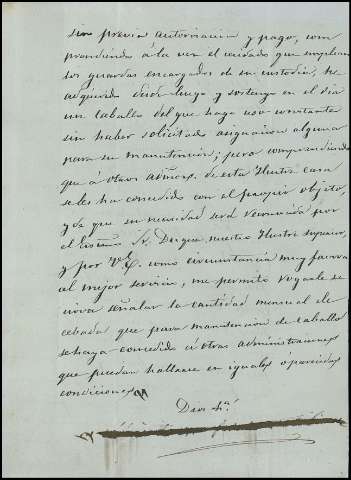 sin previa autorizacion y pago, com
prendiendo á la vez el cuidado que emplean
los guardas encargados de su custodia, he
adquirido desde luego y sostengo en el dia
un caballo del que hago uso constante
sin haber solicitado asignacion alguna
para su manutencion; pero comprendiendo
que á otros admores. de esta Ilustre casa
se les ha concedido con el propio objeto,
y de que su necesidad será reconocida por
el Escmo. Sr. Duque, nuestro Ilustre superior,
y por V.E. como circunstancia muy
al mejor servicio, me permito rogarle se
sirva señalar la cantidad mensual de
cebada que para manutencion de caballo
se haya concedido á otros administradores
que puedan hallarse en iguales ó parecidas
condiciones
Dios &.ª